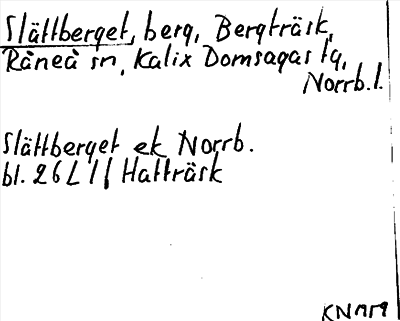 Slättberget, berg, Bergträsk,
Råneå sn, Kalix Domsagas tg,
Norrb. l.
Slättberget ek Norrb.
bl. 26 L // Hatträsk